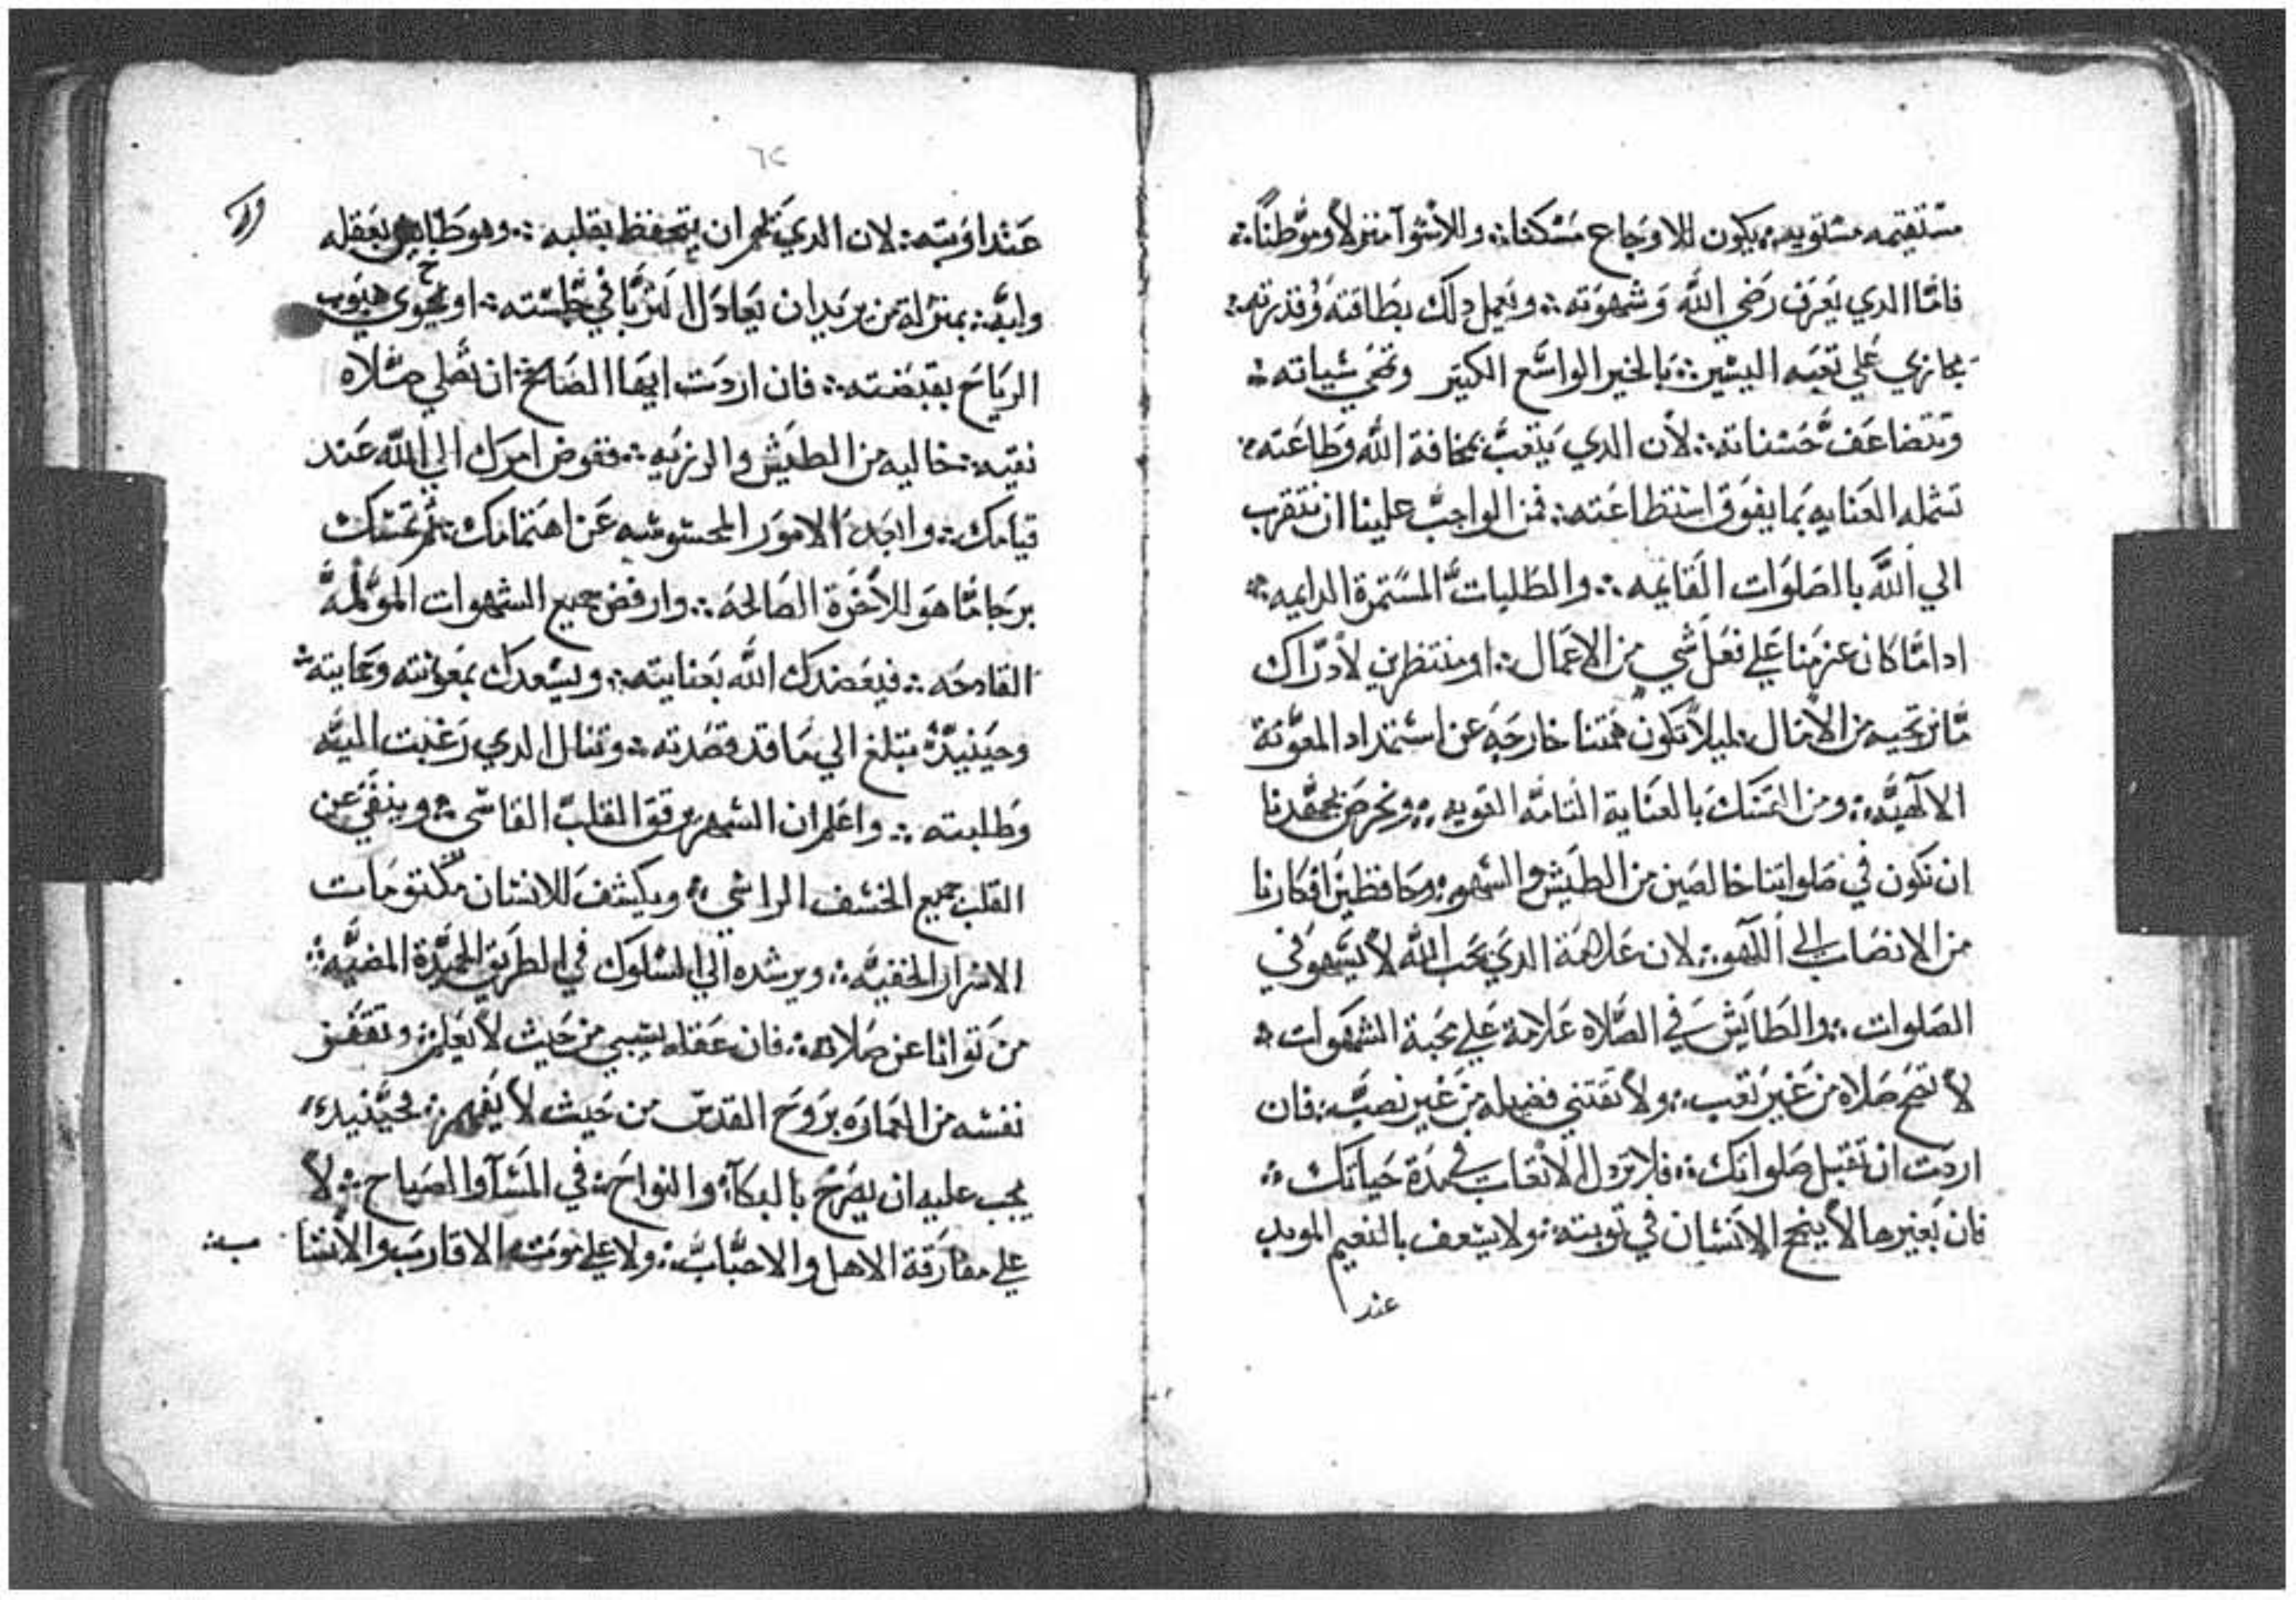 مستقيمه مستويه. يكون للاوجاع مسكنا: وللاسوآ منزلاً وموطناً:
فامّا الدي يعرف رضي الله وشهوته: ويعمل دلك بطاقته وقدرته:
يجازي علي تعبه اليسير: بالخير الواسع الكبير وتمحي سياته:
وتتضاعف حسناته: لأن الدي يتعب بمخافة الله وطاعته:
تشمله العنايه بما يفوق استطاعته: فمن الواجب علينا ان نتقرب
الي الله بالصلوات القايمه: والطلبات المستمرة الدايمه:
ادا ما كان عزمنا علي فعل شي من الاعمال: او منتظرين لأدراك
مّا نرتجيه من الآمال. ليلاً تكون همتنا خارجه عن استمداد المعونة
الالآهيّه: ومن التمسك بالعناية التامه القويه: ونحرص بجهدنا
ان نكون في صلواتنا خالصين من الطيش والسهو: وحافظين افكارنا
من الانصاب الى اللهو: لان علامة الدي يحب الله لا يسهو في
الصلوات: والطايش في الصلاه علامة علي محبة الشهوات:
لا تصح صلاه من غير تعب: ولا تقتني فضيله من غير نصب: فان
اردت ان تقبل صلواتك: فلا تزول الاتعاب في مدة حياتك:
فان بغيرها لا ينجح الانسان في توبته: ولا يسعف بالنعيم الموبد
عند
٦٢
عند اوبته: لان الدي يظهر ان يتحفظ بقلبه: وهو طايش بعقله
ولبه: بمنزلة من يريد ان يعادل الثريا في جلسته: او يحوي هبوب
الرياح بقبضته: فان اردت ايها الصالح ان تصلي صلاه
نقيه: خاليه من الطيش والرزيه: ففوض امرك الي الله عند
قيامك: وابعد الامور المحسوسه عن اهتمامك: ثم تمسك
برجا ما هو للآخرة الصالحه: وارفض جميع الشهوات المولمه
القادحه: فيعضدك الله بعنايته: ويسعدك بمعونته وحمايته
وحينيدٍ تبلغ الي ما قد قصدته: وتنال الدي رغبت اليه
وطلبته: واعلم ان السهر يرقق القلب القاسي: وينفي عن
القلب جميع الخسف الراسي: ويكشف للانسان مكتومات
الاسرار الخفيه: ويرشده الي السلوك في الطريق الحميدة المضيه:
من توانا عن صلاته: فان عقله يسبي من حيث لا يعلم: وتقفر
نفسه من العماره بروح القدس من حيث لا يفهم: فحينيد
يجب عليه ان يصرخ بالبكآ: والنواح: في المسآ والصباح: ولا
علي مفارقة الاهل والاحباب: ولا علي موت الاقارب والانسا ب: